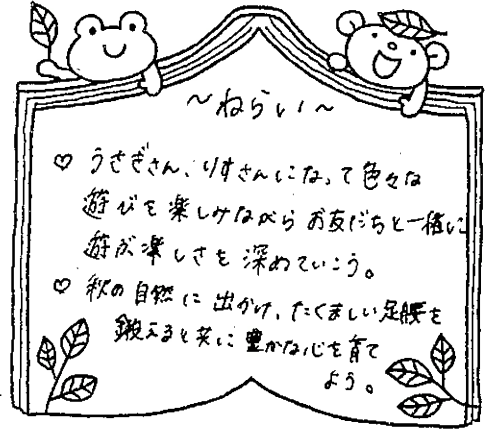 ～ねらい～
♡ うさぎさん、りすさんになって色々な
遊びを楽しみながらお友だちと一緒に
遊ぶ楽しさを深めていこう。
♡ 秋の自然に出かけ、たくましい足腰を
鍛えると共に豊かな心を育て
よう。